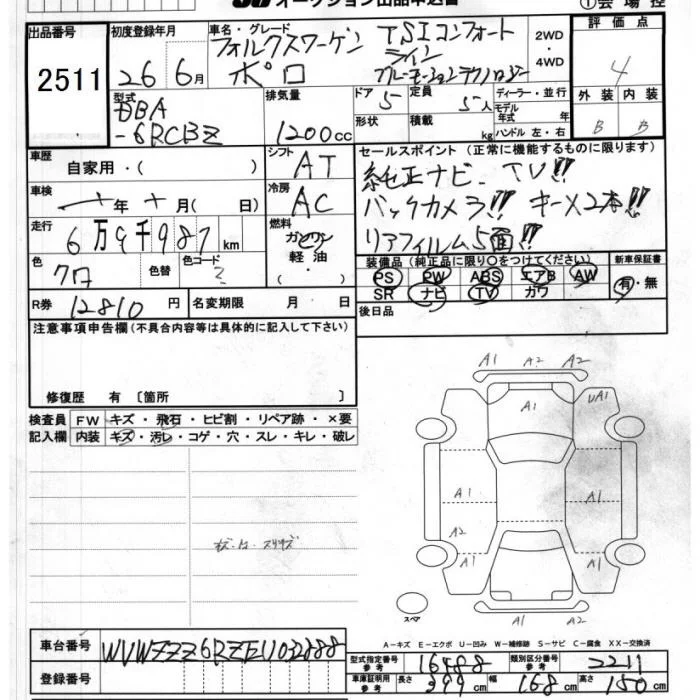 オークション出品申込書
①会場控
出品番号 2511
初度登録年月 26年 6月
車名・グレード フォルクスワーゲン ポロ TSIコンフォートライン ブルーモーションテクノロジー
2WD・4WD
評価点 4
外装 B 内装 B
型式 DBA-6RCBZ
排気量 1200cc
ドア 5
形状
定員 5人
積載 kg
ディーラー・並行
モデル年式 年
ハンドル 左・右
車歴 自家用・( )
シフト AT
車検 年 月( 日)
冷房 AC
走行 6万9千987km
燃料 ガソリン 軽油・( )
色 クロ
色替
色コード
R券 12810円
名変期限 月 日
セールスポイント(正常に機能するものに限ります)
純正ナビ、TV!!
バックカメラ!! キー×2本!!
リアフィルム5面!!
装備品(純正品に限り○をつけてください)
PS PW ABS エアB AW
SR ナビ TV カワ
新車保証書 有・無
後日品
注意事項申告欄(不具合内容等は具体的に記入して下さい)
修復歴 有〔箇所 〕
検査員記入欄
FW キズ・飛石・ヒビ割・リペア跡・×要
内装 キズ・汚レ・コゲ・穴・スレ・キレ・破レ
A1 A2 A2
A1 UA1
A1 A1
A2
A1 A1
スペア
A1 A1
A−キズ E−エクボ U−凹み W−補修跡 S−サビ C−腐食 XX−交換済
車台番号 WVWZZZ6RZEU032888
登録番号
型式指定番号 参考 16488
類別区分番号 参考 2211
車庫証明用 参考 長さ 399cm 幅 168cm 高さ 150cm